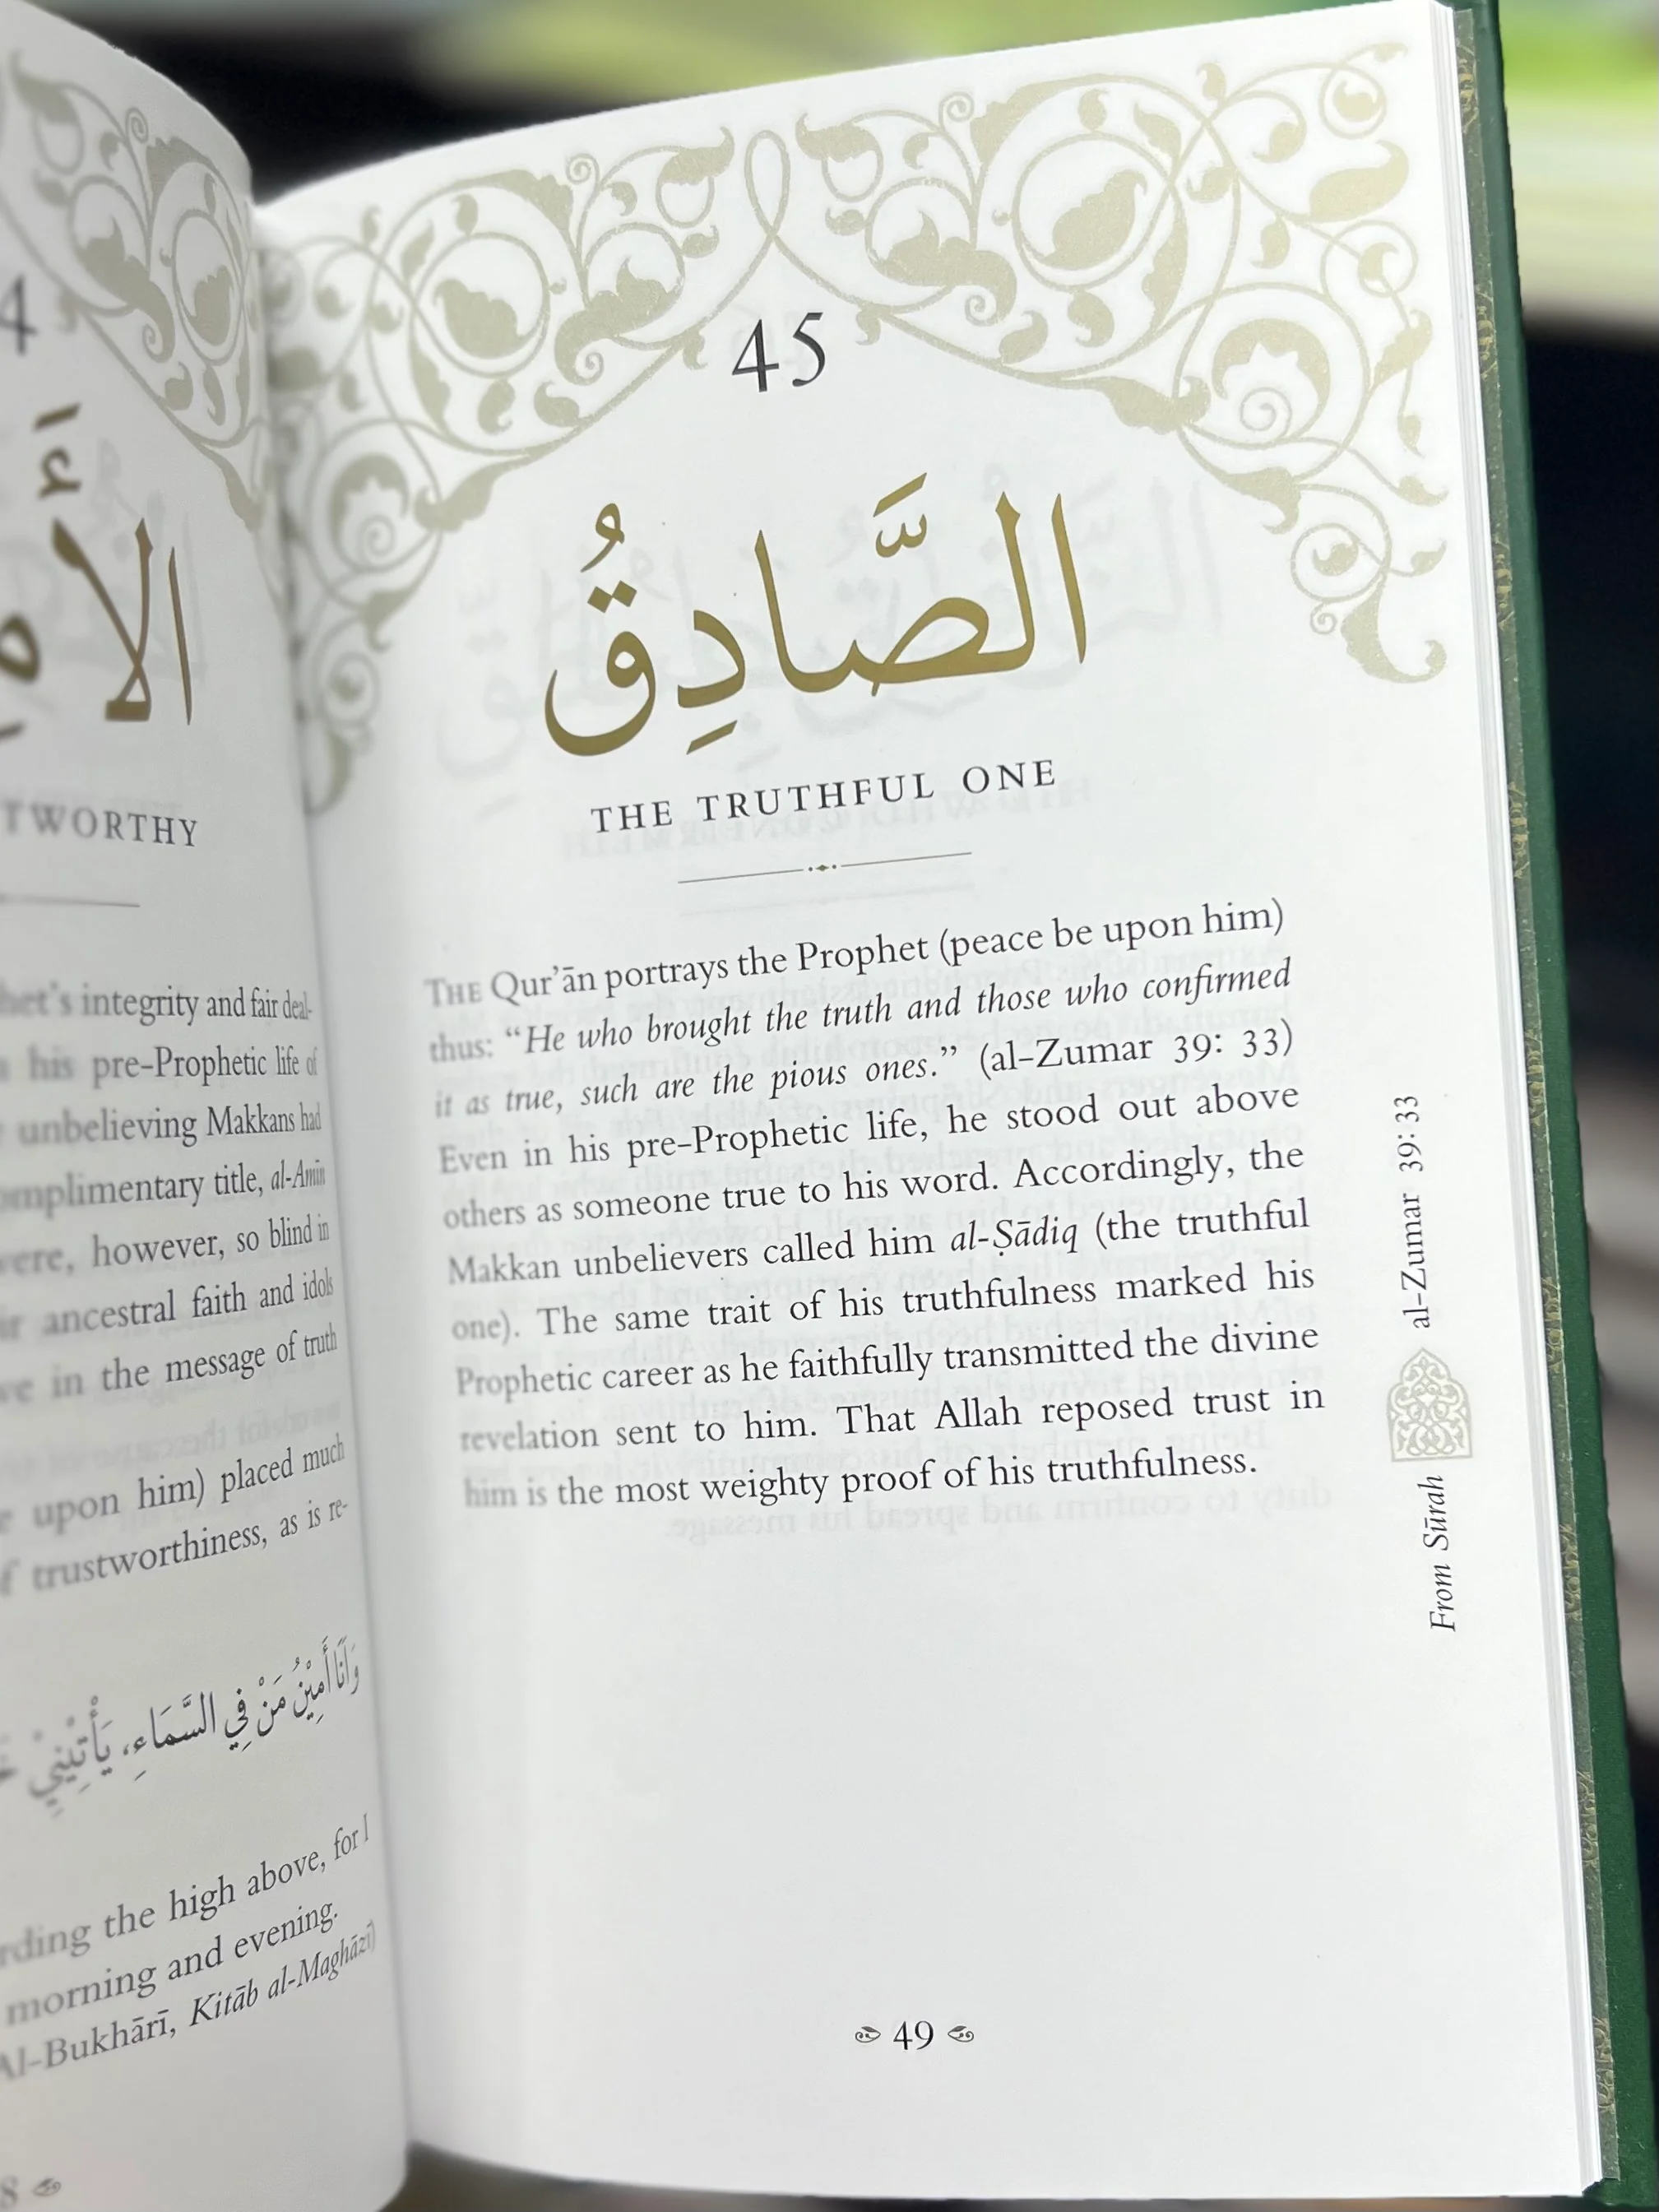 4
TWORTHY
integrity and fair deal-
his pre-Prophetic life of
unbelieving Makkans had
title, al-Amīn
however, so blind in
ancestral faith and idols
in the message of truth
upon him) placed much
trustworthiness, as is re-
وَأَنَا أَمِيْنُ مَنْ فِي السَّمَاءِ، يَأْتِيْنِيْ
the high above, for I
morning and evening.
Al-Bukhārī, Kitāb al-Maghāzī)
8
45
الصَّادِقُ
THE TRUTHFUL ONE
THE Qur’ān portrays the Prophet (peace be upon him)
thus: “He who brought the truth and those who confirmed
it as true, such are the pious ones.” (al-Zumar 39: 33)
Even in his pre-Prophetic life, he stood out above
others as someone true to his word. Accordingly, the
Makkan unbelievers called him al-Ṣādiq (the truthful
one). The same trait of his truthfulness marked his
Prophetic career as he faithfully transmitted the divine
revelation sent to him. That Allah reposed trust in
him is the most weighty proof of his truthfulness.
From Sūrah al-Zumar 39: 33
49